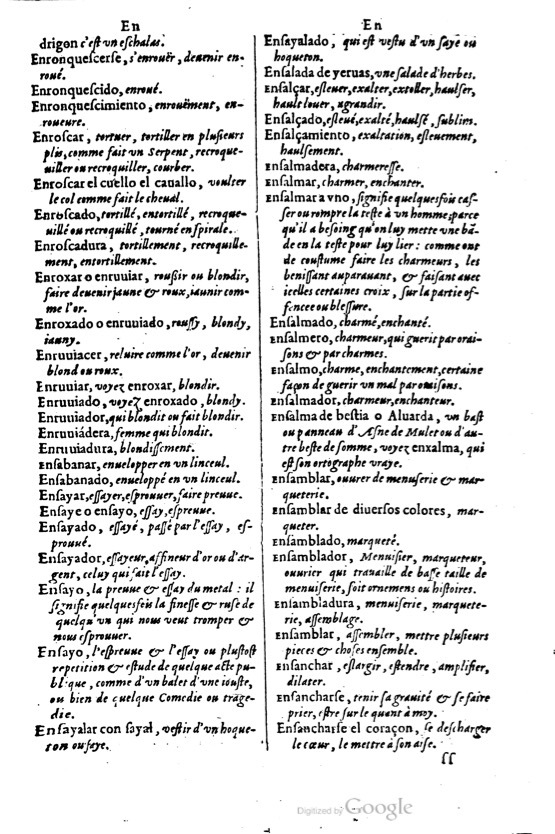 En
drigon c'est un eschalas.
Enronquescerse, s'enrouër, deuenir en-
roué.
Enronquescido, enroué.
Enronquescimiento, enrouëment, en-
roueure.
Enroscar, tortuer, tortiller en plusieurs
plis, comme fait vn Serpent, recroque-
uiller ou recroquiller, courber.
Enroscar el cuello el cauallo, voulter
le col comme fait le cheual.
Enroscado, tortillé, entortillé, recroque-
uillé ou recroquillé, tourné en spirale.
Enroscadura, tortillement, recroquille-
ment, entortillement.
Enroxar o enruuiar, roussir ou blondir,
faire deuenir jaune & roux, iaunir com-
me l'or.
Enroxado o enruuiado, roussy, blondy,
iauny.
Enruuiacer, reluire comme l'or, deuenir
blond ou roux.
Enruuiar, voyez enroxar, blondir.
Enruuiado, voyez enroxado, blondy.
Enruuiador, qui blondit ou fait blondir.
Enruuiádera, femme qui blondit.
Enruuiadura, blondissement.
Ensabanar, enuelopper en vn linceul.
Ensabanado, enueloppé en vn linceul.
Ensayar, essayer, esprouuer, faire preuue.
Ensaye o ensayo, essay, espreuue.
Ensayado, essayé, passé par l'essay, es-
prouué.
Ensayador, essayeur, affineur d'or ou d'ar-
gent, celuy qui fait l'essay.
Ensayo, la preuue & essay du metal : il
signifie quelquesfois la finesse & ruse de
quelqu'vn qui nous veut tromper &
nous esprouuer.
Ensayo, l'espreuue & l'essay ou plustost
repetition & estude de quelque acte pu-
blique, comme d'vn balet d'vne iouste,
ou bien de quelque Comedie ou trage-
die.
Ensayalar con sayal, vestir d'vn hoque-
ton ou saye.
En
Ensayalado, qui est vestu d'vn saye ou
hoqueton.
Ensalada de yeruas, vne salade d'herbes.
Ensalçar, esleuer, exalter, extoller, haulser,
hault louer, agrandir.
Ensalçado, esleué, exalté, haulsé, sublim.
Ensalçamiento, exaltation, esleuement,
haulsement.
Ensalmadera, charmeresse.
Ensalmar, charmer, enchanter.
Ensalmar a vno, signifie quelquesfois cas-
ser ou rompre la teste à vn homme, parce
qu'il a besoing qu'on luy mette vne bã-
de en la teste pour luy lier : comme ont
de coustume faire les charmeurs, les
benissant auparauant, & faisant auec
icelles certaines croix, sur la partie of-
fencee ou blessure.
Ensalmado, charmé, enchanté.
Ensalmero, charmeur, qui guerit par orai-
sons & par charmes.
Ensalmo, charme, enchantement, certaine
façon de guerir vn mal par oraisons.
Ensalmador, charmeur, enchanteur.
Ensalma de bestia o Aluarda, vn bast
ou panneau d'Asne de Mulet ou d'au-
tre beste de somme, voyez enxalma, qui
est son ortographe vraye.
Ensamblar, ouurer de menuserie & mar-
queterie.
Ensamblar de diuersos colores, mar-
queter.
Ensamblado, marqueté.
Ensamblador, Menuisier, marqueteur,
ouurier qui trauaille de basse taille de
menuiserie, soit ornemens ou histoires.
Ensambladura, menuiserie, marquete-
rie, assemblage.
Ensamblar, assembler, mettre plusieurs
pieces & choses ensemble.
Ensanchar, eslargir, estendre, amplifier,
dilater.
Ensancharse, tenir sa grauité & se faire
prier, estre sur le quant à moy.
Ensancharse el coraçon, se descharger
le cœur, le mettre à son aise.
ſſ
Digitized by Google